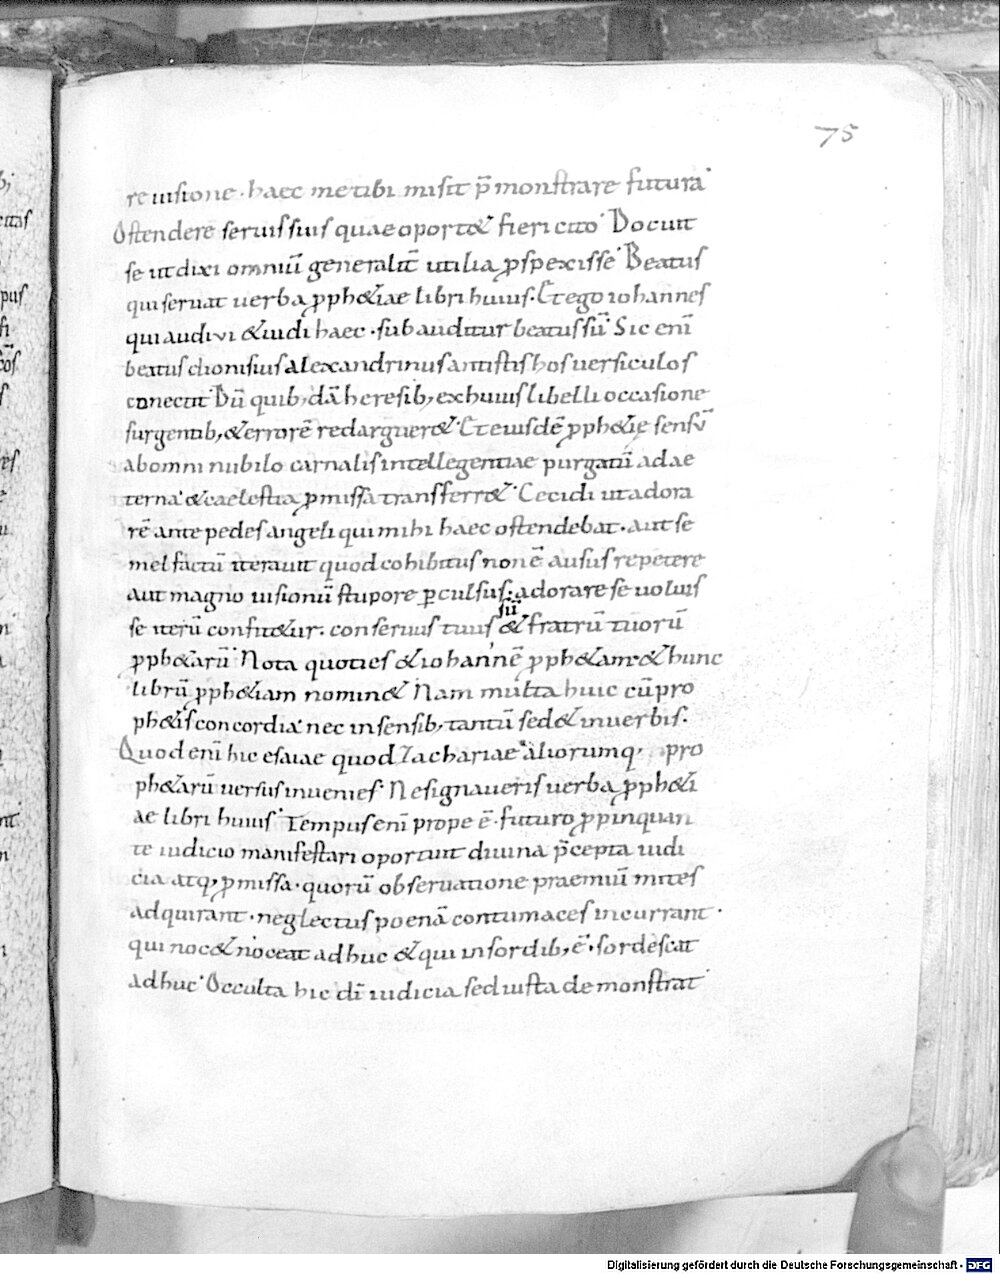 75
re uisione · haec me tibi misit p̄monstrare futura·
Ostendere seruis suis quae oport& fieri cito· Docuit
se ut dixi omniū generalit̄ utilia ꝓspexisse· Beatus
qui seruat uerba ꝓph&iae libri huius· Et ego iohannes
qui audivi &uidi haec · subauditur beatus sū· Sic enī
beatus dionisius alexandrinus antistis hos uersiculos
conectit· Dū quib; dā heresib; ex huius libelli occasione
surgentib; &errorē redarguer&· Et eiusdē ꝓph&ię sensū
ab omni nubilo carnalis intellegentiae purgatū ad ae
terna· &caelestia ꝓmissa transferr&· Cecidi ut adora
rē ante pedes angeli qui mihi haec ostendebat · aut se
mel factū iterauit quod cohibitus non ē ausus repetere
aut magno uisionū stupore ꝑculsus; adorare se uoluis
se iterū confit&ur · conseruus tuus sū & fratrū tuorū
ꝓph&arū· Nota quoties &iohannē ꝓph&am·&hunc
librū ꝓph&iam nomin& Nam multa huic cū pro
ph&is concordia· nec in sensib; tantū sed& in uerbis·
Quod enī hic esaiae quod Zachariae aliorumq; pro
ph&arū uersus inuenies· Ne signaueris uerba ꝓph&i
ae libri huius· Tempus enī prope ē · futuro ꝓpinquan
te iudicio manifestari oportuit diuina p̄cepta iudi
cia atq; ꝓmissa · quorū obseruatione praemiū mites
adquirant · neglectus poenā contumaces incurrant ·
qui noc& noceat adhuc &qui in sordib; ē · sordescat
adhuc· Occulta hic dī iudicia sed iusta demonstrat·
Digitalisierung gefördert durch die Deutsche Forschungsgemeinschaft - DFG